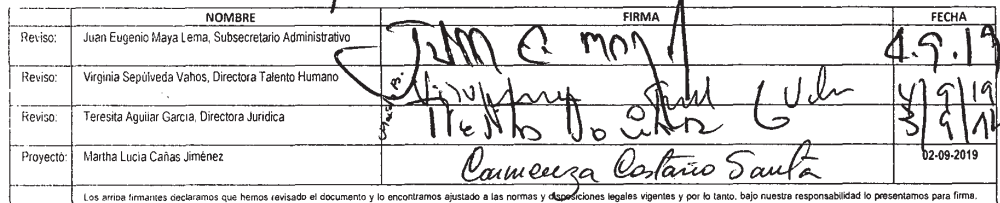 NOMBRE FIRMA FECHA
Reviso: Juan Eugenio Maya Lema, Subsecretario Administrativo 4.9.19
Reviso: Virginia Sepúlveda Vahos, Directora Talento Humano 4/9/19
Reviso: Teresita Aguilar García, Directora Jurídica
Proyectó: Martha Lucía Cañas Jiménez Carmenza Castaño Santa 02-09-2019
Los arriba firmantes declaramos que hemos revisado el documento y lo encontramos ajustado a las normas y disposiciones legales vigentes y por lo tanto, bajo nuestra responsabilidad lo presentamos para firma.